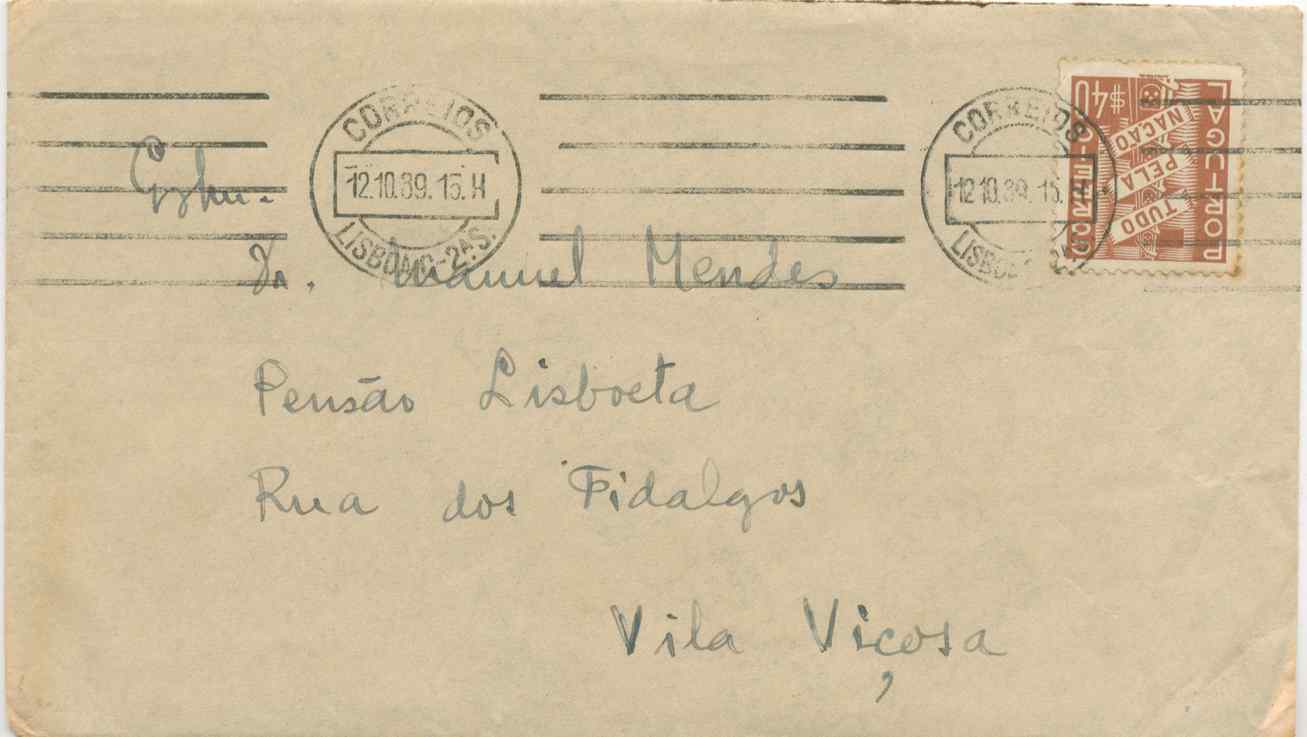 CORREIOS
12.10.39.15.H
LISBOA-2ª S.
CORREIOS
12.10.39.15.H
LISBOA-2ª S.
PORTUGAL
TUDO PELA NAÇÃO
CORREIO
$40
Exmo.
Dr. Manuel Mendes
Pensão Lisboeta
Rua dos Fidalgos
Vila Viçosa